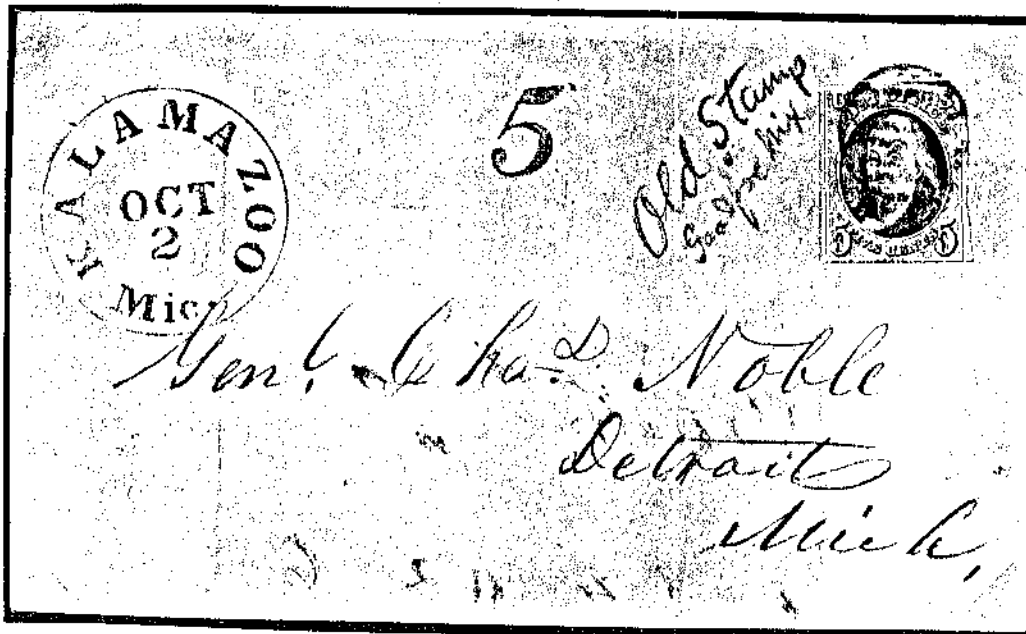 KALAMAZOO
OCT
2
Mich
5
Old Stamp
Good for nix
Genl. Chas. Noble
Detroit
Mich,